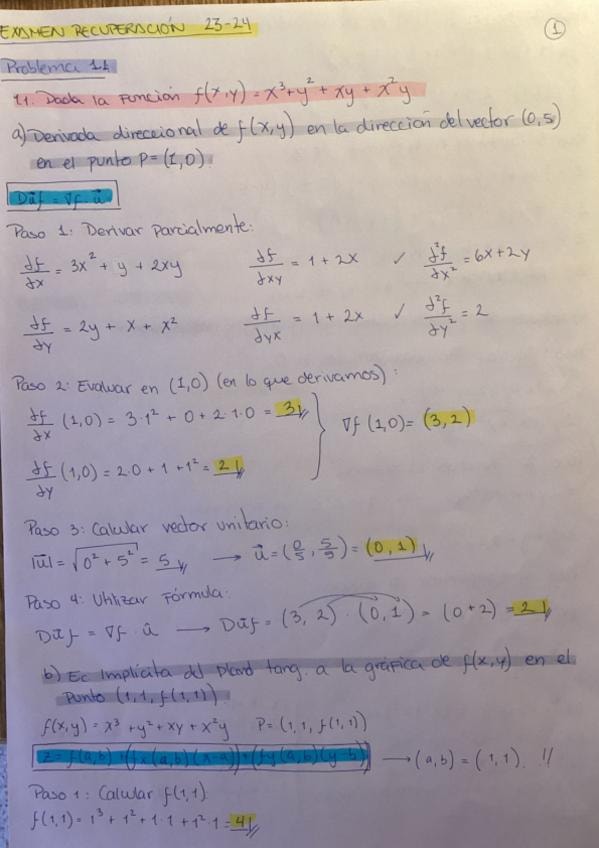 EXAMEN RECUPERACIÓN 23-24
1
Problema 1.1
1.1. Dada la función f(x,y) = x³+y²+xy+x²y
a) Derivada direccional de f(x,y) en la dirección del vector (0,5)
en el punto P=(1,0).
Dūf = ∇f·ū
Paso 1: Derivar parcialmente:
∂f/∂x = 3x² + y + 2xy ∂f/∂xy = 1 + 2x ✓ ∂²f/∂x² = 6x+2y
∂f/∂y = 2y + x + x² ∂f/∂yx = 1 + 2x ✓ ∂²f/∂y² = 2
Paso 2: Evaluar en (1,0) (en lo que derivamos):
∂f/∂x (1,0) = 3·1² + 0 + 2·1·0 = 3
∇f (1,0) = (3,2)
∂f/∂y (1,0) = 2·0 + 1 + 1² = 2
Paso 3: Calular vector unitario:
|ū| = √(0²+5²) = 5 → ū = (0/5, 5/5) = (0,1)
Paso 4: Utilizar Fórmula:
Dūf = ∇f · û → Dūf = (3,2) · (0,1) = (0+2) = 2
b) Ec Implícita del plano tang. a la gráfica de f(x,y) en el
punto (1,1,f(1,1))
f(x,y) = x³ + y² + xy + x²y P = (1,1,f(1,1))
z = f(a,b) + (fx(a,b)(x-a)) + (fy(a,b)(y-b)) → (a,b) = (1,1). !!
Paso 1: Calular f(1,1).
f(1,1) = 1³ + 1² + 1·1 + 1²·1 = 4